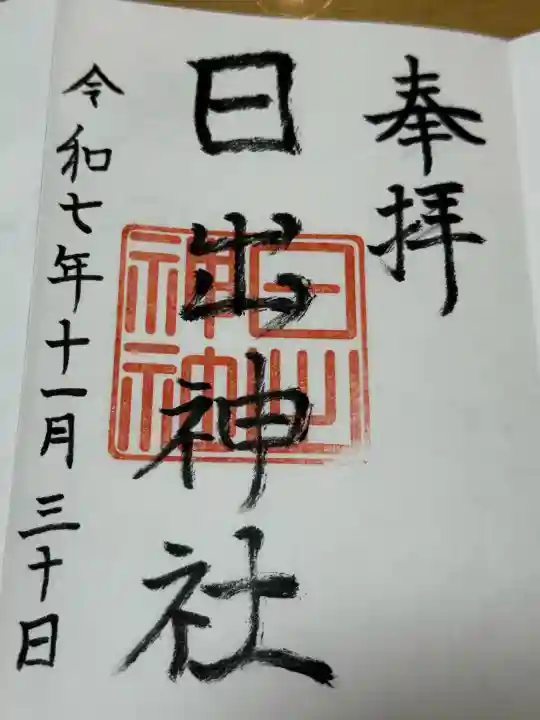 奉拝
日出神社
日出神社
令和七年十一月三十日